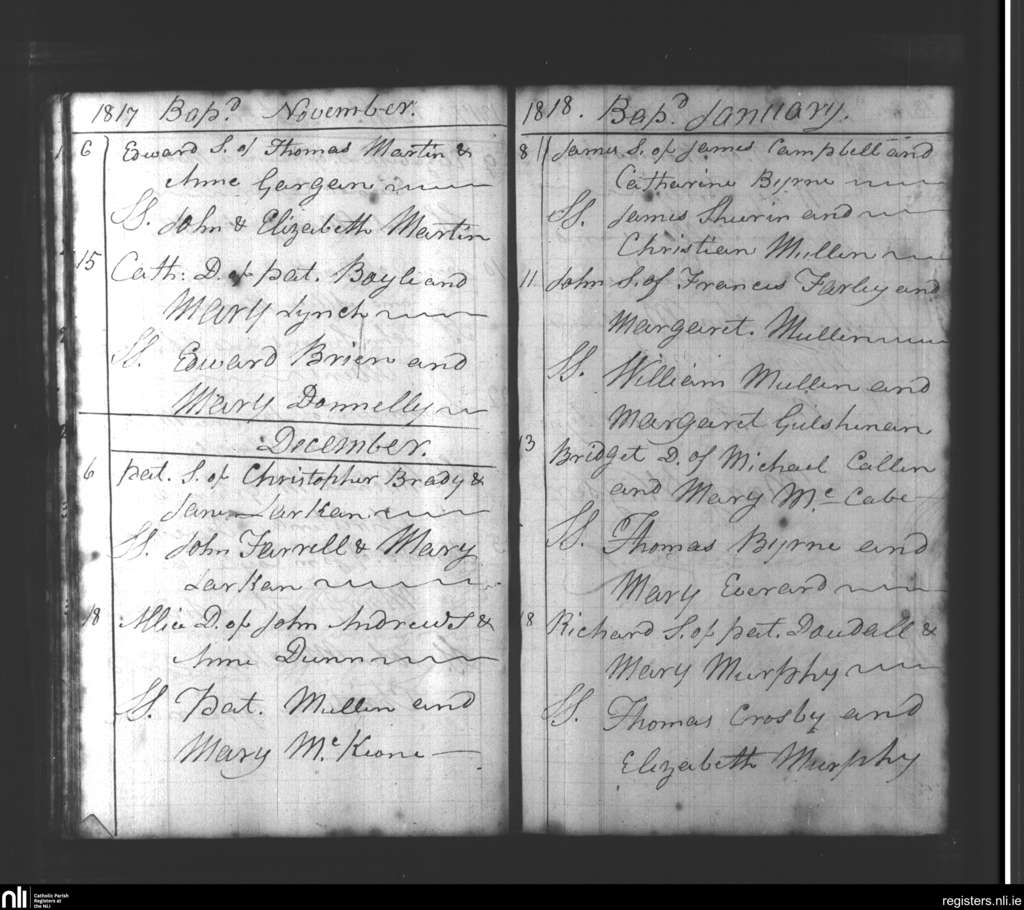 1817 Bapd November.
6 Edward S. of Thomas Martin &
Anne Gargan
SS. John & Elizabeth Martin
15 Cath: D. of pat. Boyle and
Mary Lynch
SS. Edward Brien and
Mary Donnelly
December.
6 Pat. S. of Christopher Brady &
Jane Larkan
SS. John Farrell & Mary
Larkan
18 Alice D. of John Andrews &
Anne Dunn
SS. Pat. Mullen and
Mary Mc Keone
1818. Bapd January.
8 James S. of James Campbell and
Catharine Byrne
SS. James Sherin and
Christian Mullen
11 John S. of Francis Farley and
Margaret. Mullen
SS. William Mullen and
Margaret Gilshinan
13 Bridget D. of Michael Callen
and Mary Mc Cabe
SS. Thomas Byrne and
Mary Everard
18 Richard S. of pat. Dowdall &
Mary Murphy
SS. Thomas Crosby and
Elizabeth Murphy
nli
Catholic Parish
Registers at
the NLI
registers.nli.ie